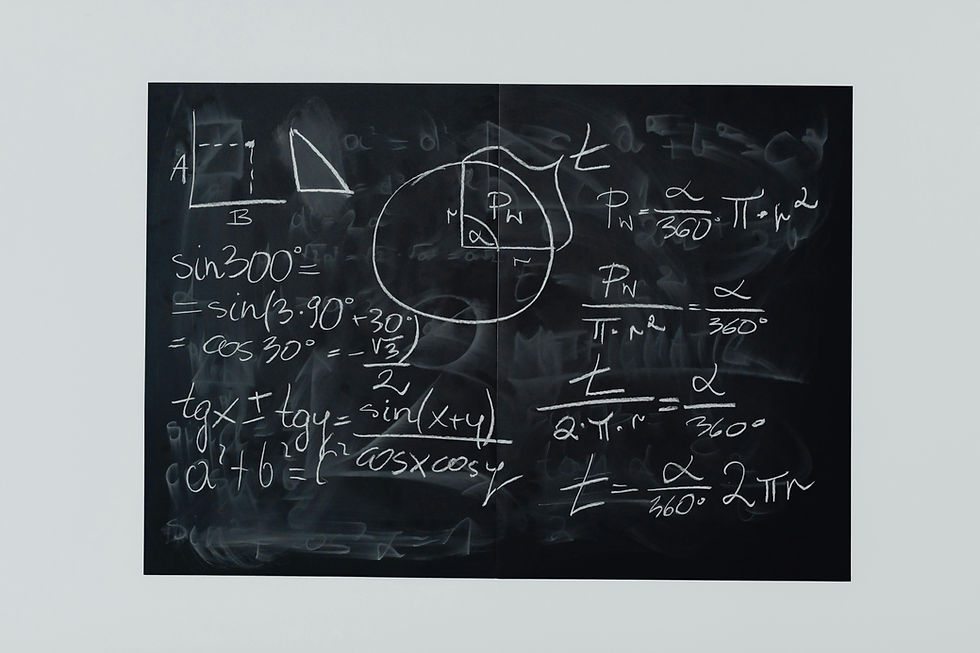 A
B
sin300°=
=sin(3·90°+30°)
= cos30° = -√3/2
tgx ± tgy = sin(x+y)/cosxcosy
a²+b²=c²
t
r
Pw
α
r
Pw = α/360° · π · r²
Pw/π·r² = α/360°
t/2·π·r = α/360°
t = α/360° 2πr